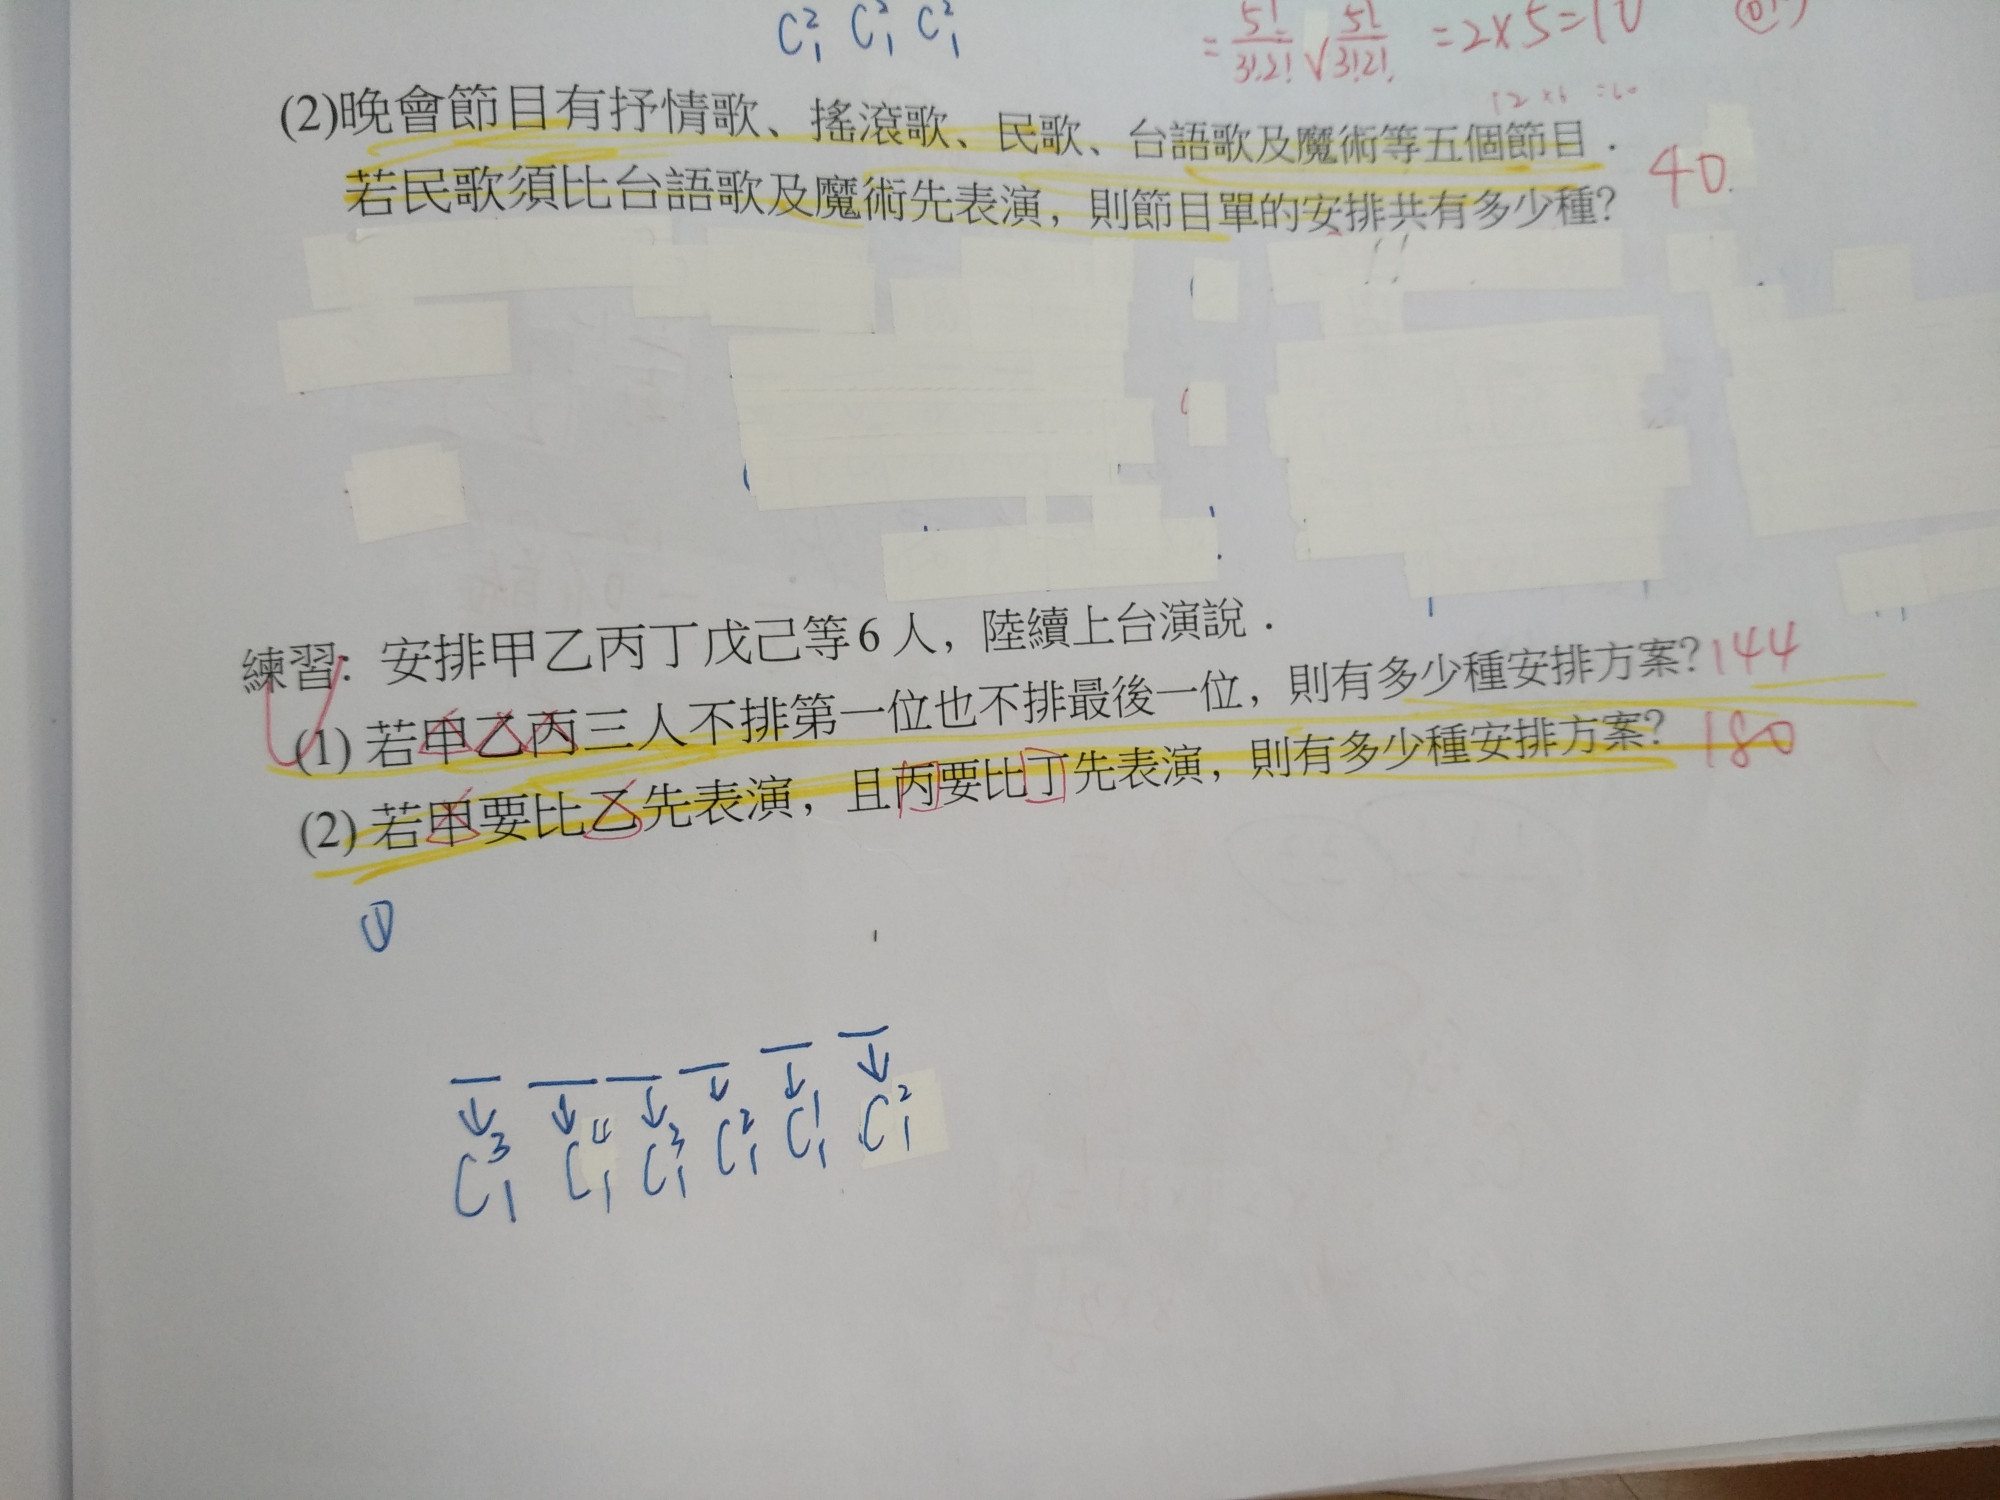 C²₁ C²₁ C²₁
= 5!/3!2! √ 5!/3!2! = 2×5=10
12×5=60
(2)晚會節目有抒情歌、搖滾歌、民歌、台語歌及魔術等五個節目．
若民歌須比台語歌及魔術先表演，則節目單的安排共有多少種？ 40
練習：安排甲乙丙丁戊己等6人，陸續上台演說．
(1) 若甲乙丙三人不排第一位也不排最後一位，則有多少種安排方案？144
(2) 若甲要比乙先表演，且丙要比丁先表演，則有多少種安排方案？ 180
①
C³₁ C⁴₁ C³₁ C²₁ C¹₁ C²₁